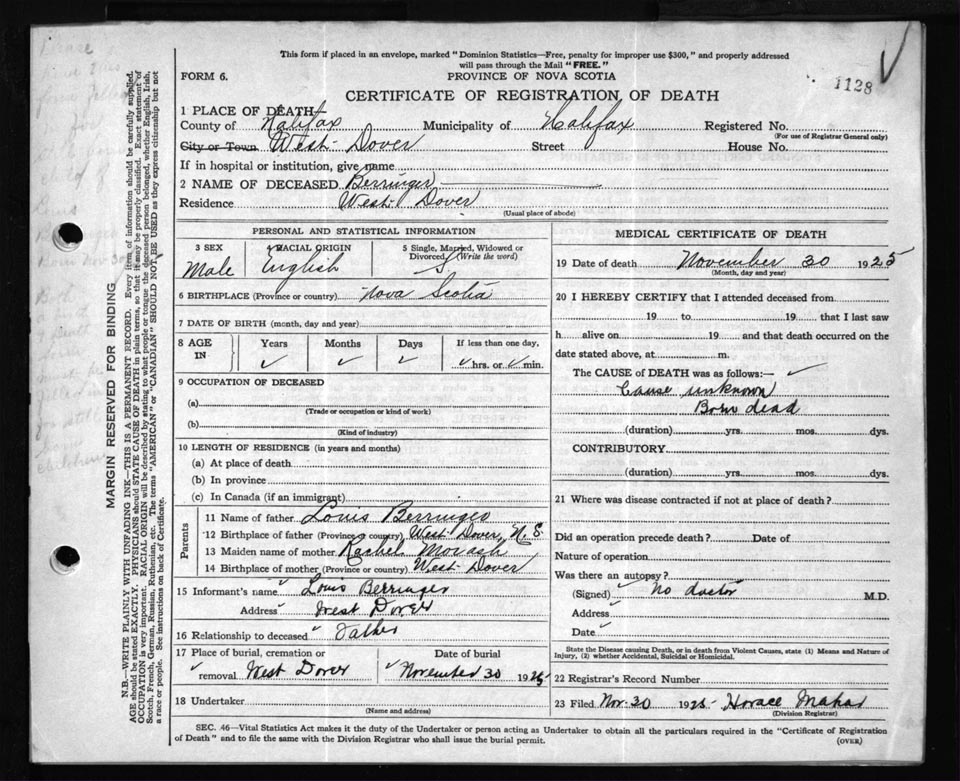 This form if placed in an envelope, marked "Dominion Statistics—Free, penalty for improper use $300," and properly addressed
will pass through the Mail "FREE."
FORM 6.
PROVINCE OF NOVA SCOTIA
1128
CERTIFICATE OF REGISTRATION OF DEATH
1 PLACE OF DEATH
County of Halifax Municipality of Halifax Registered No.
(For use of Registrar General only)
City or Town West Dover Street House No.
If in hospital or institution, give name
2 NAME OF DECEASED Berringer
Residence West Dover
(Usual place of abode)
PERSONAL AND STATISTICAL INFORMATION
3 SEX 4 RACIAL ORIGIN 5 Single, Married, Widowed or Divorced (Write the word)
Male English S
6 BIRTHPLACE (Province or country) Nova Scotia
7 DATE OF BIRTH (month, day and year)
8 AGE IN Years Months Days If less than one day,
hrs. or min.
9 OCCUPATION OF DECEASED
(a)
(Trade or occupation or kind of work)
(b)
(Kind of industry)
10 LENGTH OF RESIDENCE (in years and months)
(a) At place of death
(b) In province
(c) In Canada (if an immigrant)
Parents
11 Name of father Louis Berringer
12 Birthplace of father (Province or country) West Dover, N.S.
13 Maiden name of mother Rachel Morash
14 Birthplace of mother (Province or country) West Dover
15 Informant's name Louis Berringer
Address West Dover
16 Relationship to deceased Father
17 Place of burial, cremation or removal West Dover
Date of burial November 30 1925
18 Undertaker
(Name and address)
MEDICAL CERTIFICATE OF DEATH
19 Date of death November 30 1925
(Month, day and year)
20 I HEREBY CERTIFY that I attended deceased from
19 to 19 that I last saw
h alive on 19 and that death occurred on the
date stated above, at m.
The CAUSE of DEATH was as follows:—
Cause unknown
Born dead
(duration) yrs. mos. dys.
CONTRIBUTORY
(duration) yrs. mos. dys.
21 Where was disease contracted if not at place of death?
Did an operation precede death? Date of
Nature of operation
Was there an autopsy?
(Signed) No doctor M.D.
Address
Date
State the Disease causing Death, or in death from Violent Causes, state (1) Means and Nature of
Injury, (2) whether Accidental, Suicidal or Homicidal.
22 Registrar's Record Number
23 Filed Nov. 30 1925 Horace
(Division Registrar)
SEC. 46—Vital Statistics Act makes it the duty of the Undertaker or person acting as Undertaker to obtain all the particulars required in the "Certificate of Registration
of Death" and to file the same with the Division Registrar who shall issue the burial permit.
(OVER)
MARGIN RESERVED FOR BINDING
N.B.—WRITE PLAINLY WITH UNFADING INK—THIS IS A PERMANENT RECORD. Every item of information should be carefully supplied.
AGE should be stated EXACTLY. PHYSICIANS should STATE CAUSE OF DEATH in plain terms, so that it may be properly classified. Exact statement of
OCCUPATION is very important. RACIAL ORIGIN will be described by stating to what people or tongue the deceased person belonged, whether English, Irish,
Scotch, French, German, Russian, Ruthenian, etc. The terms "AMERICAN" or "CANADIAN" SHOULD NOT BE USED as they express citizenship but not
a race or people. See instructions on back of Certificate.